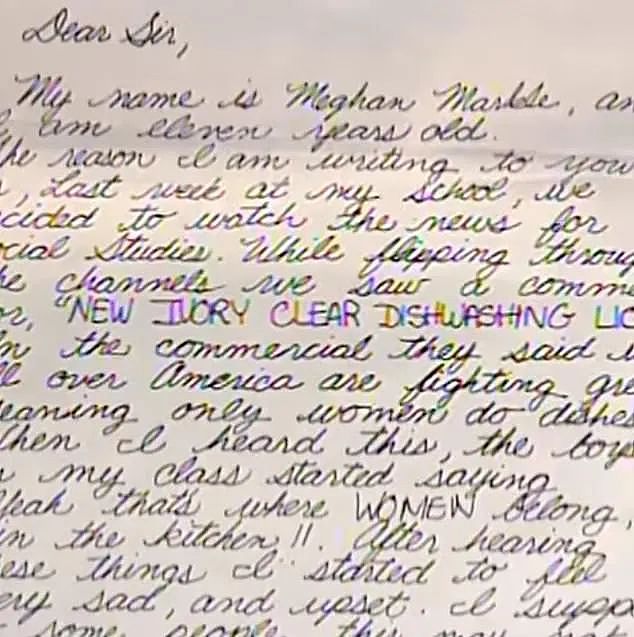 Dear Sir,
My name is Meghan Markle, an
I am eleven years old.
he reason I am writing to you
s, Last week at my school, we
cided to watch the news for
ocial Studies. While flipping throug
he channels we saw a comme
or, "NEW IVORY CLEAR DISHWASHING LIQ
In the commercial they said w
ll over America are fighting gre
eaning only women do dishes
hen I heard this, the boys
n my class started saying
Yeah thats where WOMEN belong,
in the kitchen!!. After hearing
ese things I started to feel
ery sad, and upset. I suppo
some people this may